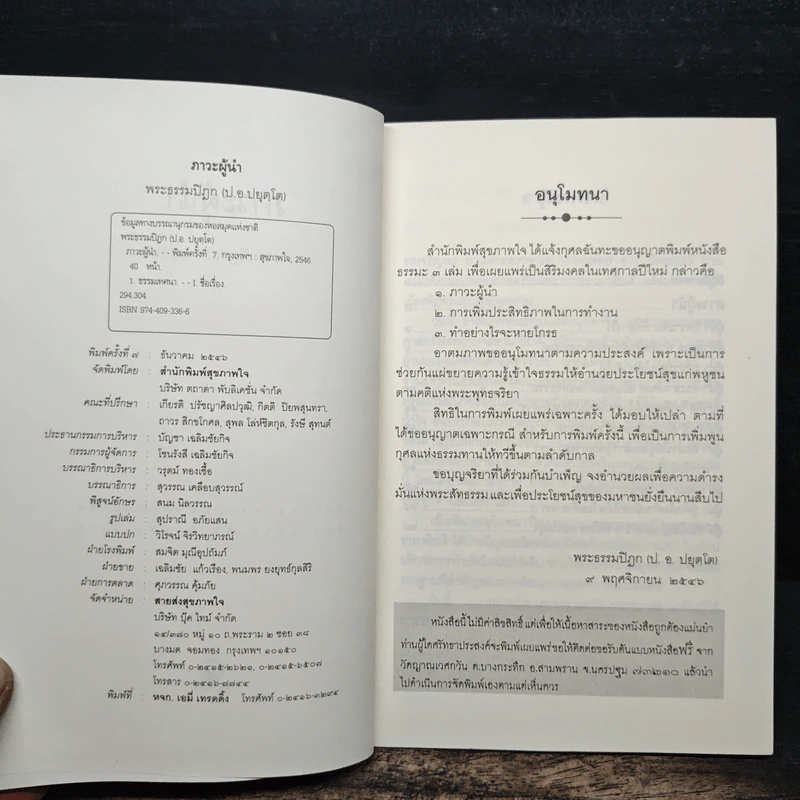 ภาวะผู้นำ
พระธรรมปิฎก (ป.อ.ปยุตฺโต)
ข้อมูลทางบรรณานุกรมของหอสมุดแห่งชาติ
พระธรรมปิฎก (ป.อ. ปยุตฺโต)
ภาวะผู้นำ. - - พิมพ์ครั้งที่ 7. กรุงเทพฯ : สุขภาพใจ, 2546
40 หน้า.
1. ธรรมเทศนา. - - I. ชื่อเรื่อง.
294.304
ISBN 974-409-336-6
พิมพ์ครั้งที่ ๗ : ธันวาคม ๒๕๔๖
จัดพิมพ์โดย : สำนักพิมพ์สุขภาพใจ
บริษัท ตถาตา พับลิเคชั่น จำกัด
คณะที่ปรึกษา : เกียรติ ปรัชญาศิลปวุฒิ, กิตติ ปิยพสุนทรา,
ถาวร สิกขโกศล, สุพล โล่ห์ชิตกุล, รังษี สุทนต์
ประธานกรรมการบริหาร : บัญชา เฉลิมชัยกิจ
กรรมการผู้จัดการ : โชนรังสี เฉลิมชัยกิจ
บรรณาธิการบริหาร : วรุตม์ ทองเชื้อ
บรรณาธิการ : สุวรรณ เคลือบสุวรรณ์
พิสูจน์อักษร : สนม นิลวรรณ
รูปเล่ม : สุปราณี อภัยแสน
แบบปก : วิโรจน์ จิรวิทยาภรณ์
ฝ่ายโรงพิมพ์ : สมจิต มุณีอุปถัมภ์
ฝ่ายขาย : เฉลิมชัย แก้วเรือง, พนมพร ยงยุทธ์กุลสิริ
ฝ่ายการตลาด : ศุภวรรณ คุ้มภัย
จัดจำหน่าย : สายส่งสุขภาพใจ
บริษัท บุ๊ค ไทม์ จำกัด
๑๔/๓๗๐ หมู่ ๑๐ ถ.พระราม ๒ ซอย ๓๘
บางมด จอมทอง กรุงเทพฯ ๑๐๑๕๐
โทรศัพท์ ๐-๒๔๑๕-๒๖๒๑, ๐-๒๔๑๕-๖๕๐๗
โทรสาร ๐-๒๔๑๖-๗๗๔๔
พิมพ์ที่ : หจก. เอมี่ เทรดดิ้ง โทรศัพท์ ๐-๒๔๑๖-๓๒๙๔
อนุโมทนา
สำนักพิมพ์สุขภาพใจ ได้แจ้งกุศลฉันทะขออนุญาตพิมพ์หนังสือ
ธรรมะ ๓ เล่ม เพื่อเผยแพร่เป็นสิริมงคลในเทศกาลปีใหม่ กล่าวคือ
๑. ภาวะผู้นำ
๒. การเพิ่มประสิทธิภาพในการทำงาน
๓. ทำอย่างไรจะหายโกรธ
อาตมภาพขออนุโมทนาตามความประสงค์ เพราะเป็นการ
ช่วยกันแผ่ขยายความรู้เข้าใจธรรมให้อำนวยประโยชน์สุขแก่พหูชน
ตามคติแห่งพระพุทธจริยา
สิทธิในการพิมพ์เผยแพร่เฉพาะครั้ง ได้มอบให้เปล่า ตามที่
ได้ขออนุญาตเฉพาะกรณี สำหรับการพิมพ์ครั้งนี้ เพื่อเป็นการเพิ่มพูน
กุศลแห่งธรรมทานให้ทวีขึ้นตามลำดับกาล
ขอบุญจริยาที่ได้ร่วมกันบำเพ็ญ จงอำนวยผลเพื่อความดำรง
มั่นแห่งพระสัทธรรม และเพื่อประโยชน์สุขของมหาชนยั่งยืนนานสืบไป
พระธรรมปิฎก (ป. อ. ปยุตฺโต)
๙ พฤศจิกายน ๒๕๔๖
หนังสือนี้ไม่มีค่าลิขสิทธิ์ แต่เพื่อให้เนื้อหาสาระของหนังสือถูกต้องแม่นยำ
ท่านผู้ใดศรัทธาประสงค์จะพิมพ์เผยแพร่ ขอให้ติดต่อขอรับต้นแบบหนังสือฟรี จาก
วัดญาณเวศกวัน ต.บางกระทึก อ.สามพราน จ.นครปฐม ๗๓๒๑๐ แล้วนำ
ไปดำเนินการจัดพิมพ์เองตามแต่เห็นควร